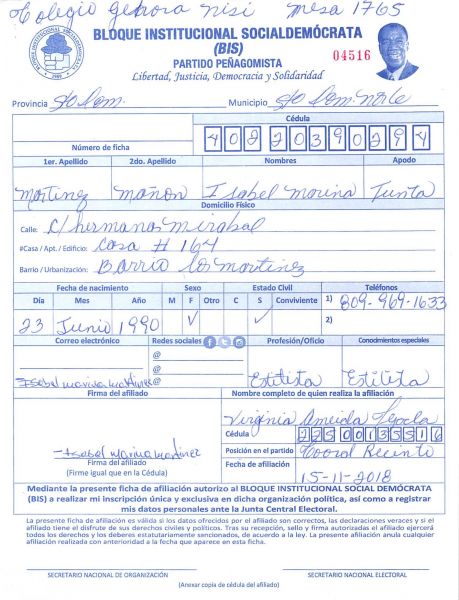 Colegio Genora Nisi Mesa 1765
BLOQUE INSTITUCIONAL SOCIALDEMÓCRATA
(BIS)
04516
PARTIDO PEÑAGOMISTA
Libertad, Justicia, Democracia y Solidaridad
BLOQUE INSTITUCIONAL SOCIALDEMÓCRATA
Provincia Sto Dom. Municipio Sto Dom. Norte
Cédula
Número de ficha 40220390294
1er. Apellido 2do. Apellido Nombres Apodo
Martinez Mañon Isabel Marina Tunta
Domicilio Físico
Calle: C/ hermanas Mirabal
#Casa / Apt. / Edificio: Casa # 164
Barrio / Urbanización: Barrio los Martinez
Fecha de nacimiento Sexo Estado Civil Teléfonos
Día Mes Año M F Otro C S Conviviente 1) 809-969-1633
23 Junio 1990 ✓ ✓ 2)
Correo electrónico Redes sociales Profesión/Oficio Conocimientos especiales
@
@
Isabel marina martinez @ Estilista Estilista
Firma del afiliado Nombre completo de quien realiza la afiliación
Virginia
Cédula
22500135516
Isabel marina martinez Posición en el partido Coord Recinto
Firma del afiliado Fecha de afiliación
(Firme igual que en la Cédula) 15-11-2018
Mediante la presente ficha de afiliación autorizo al BLOQUE INSTITUCIONAL SOCIAL DEMÓCRATA
(BIS) a realizar mi inscripción única y exclusiva en dicha organización política, así como a registrar
mis datos personales ante la Junta Central Electoral.
La presente ficha de afiliación es válida si los datos ofrecidos por el afiliado son correctos, las declaraciones veraces y si el
afiliado tiene el disfrute de sus derechos civiles y políticos. Tras su recepción, sello y firma autorizadas el afiliado ejercerá
todos los derechos y los deberes estatutariamente sancionados, de acuerdo a la ley. La presente afiliación anula cualquier
afiliación realizada con anterioridad a la fecha que aparece en esta ficha.
SECRETARIO NACIONAL DE ORGANIZACIÓN SECRETARIO NACIONAL ELECTORAL
(Anexar copia de cédula del afiliado)